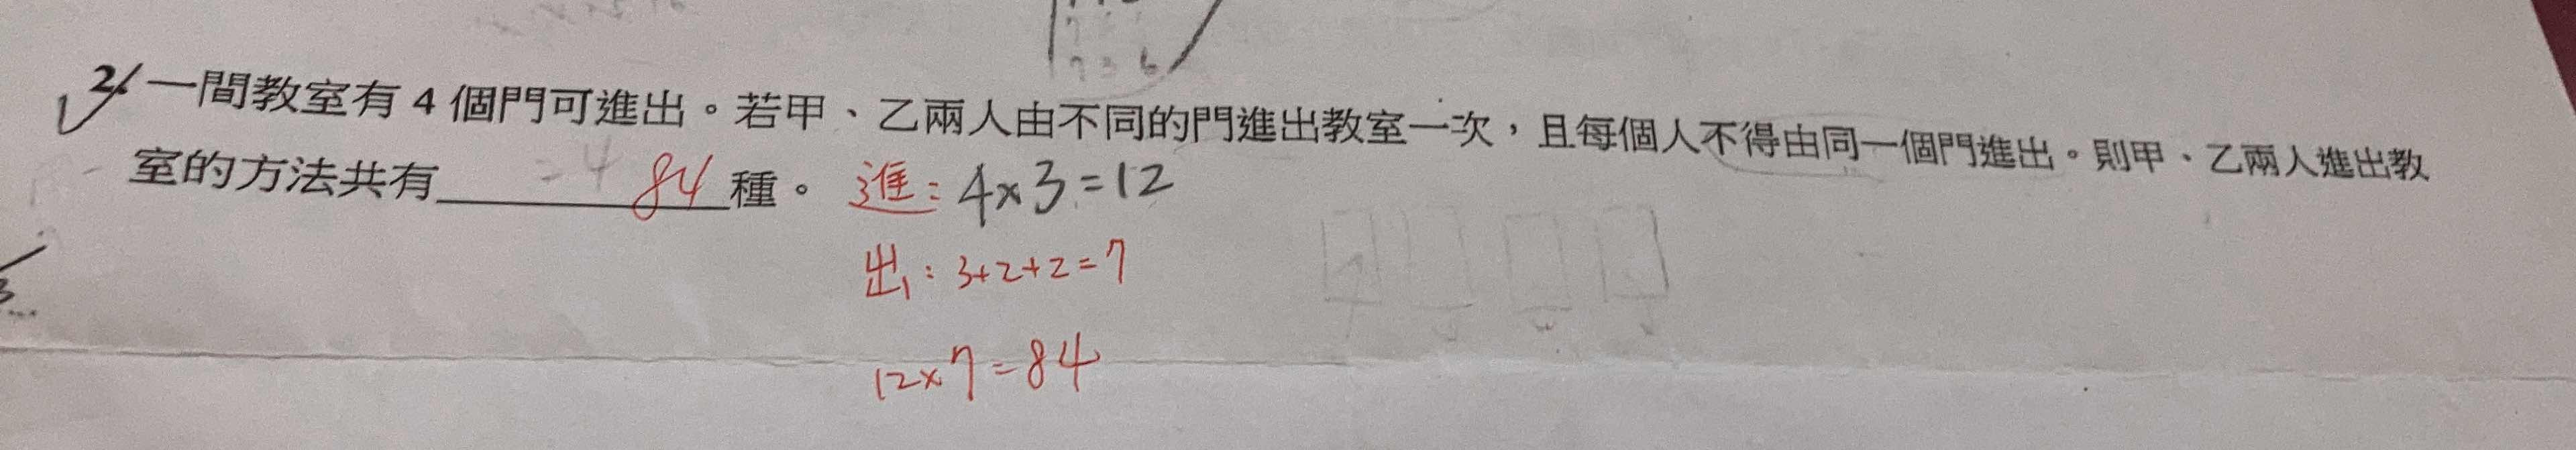 7 3 6
2. 一間教室有 4 個門可進出。若甲、乙兩人由不同的門進出教室一次，且每個人不得由同一個門進出。則甲、乙兩人進出教
室的方法共有 =4 84 種。 進: 4×3=12
出: 3+2+2=7
12×7=84